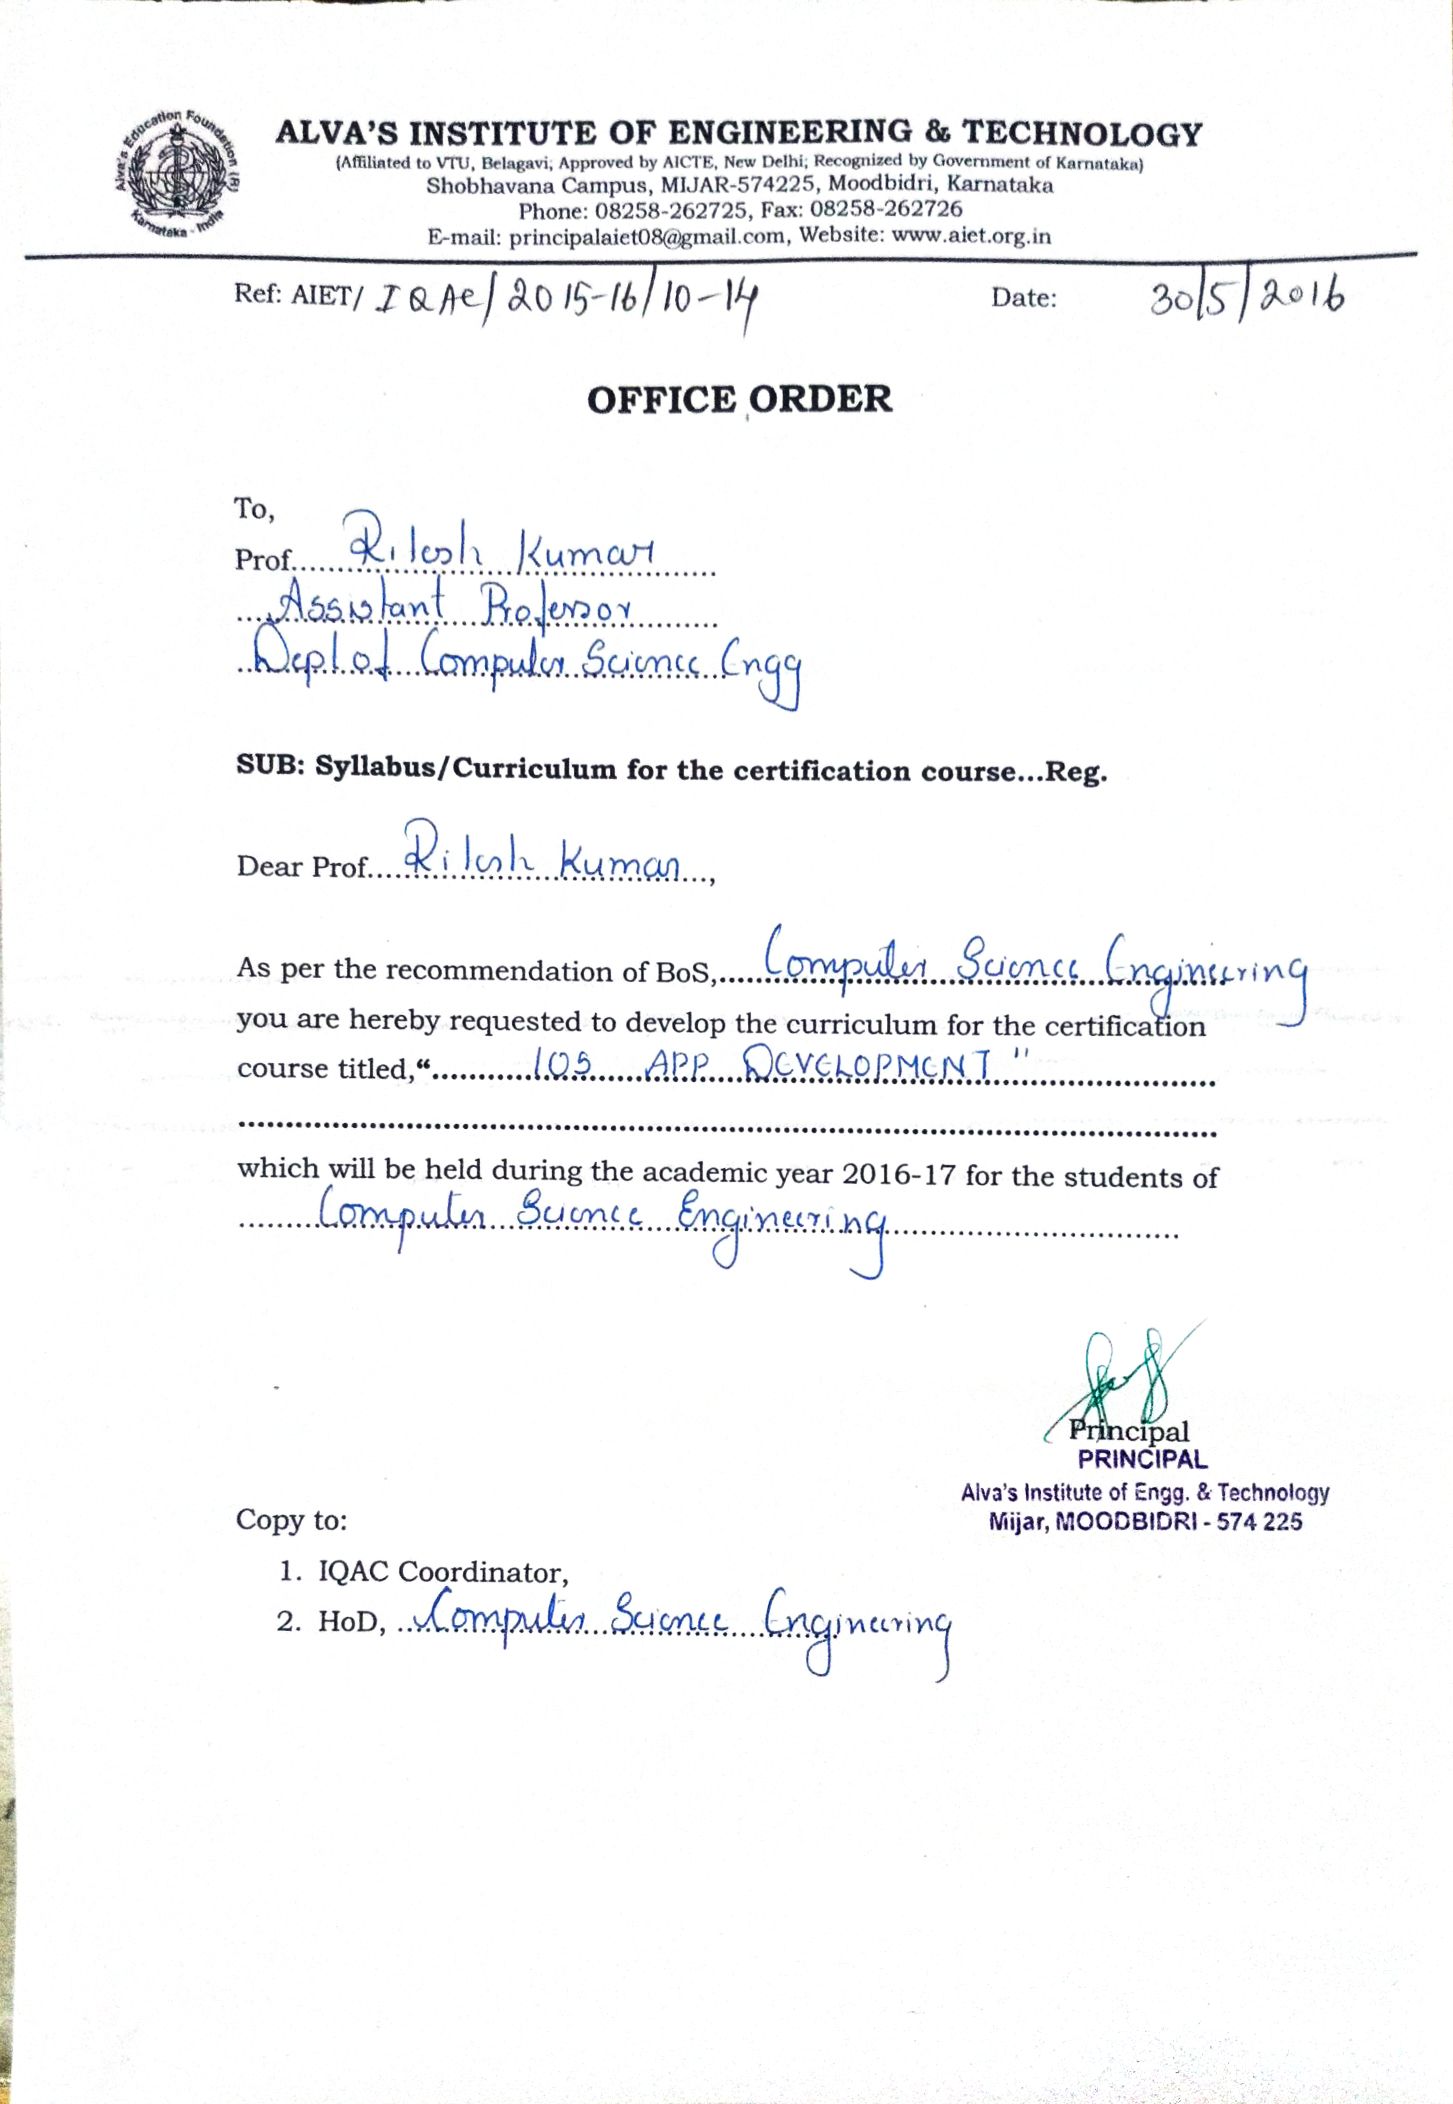 Alva's Education Foundation (R)
Karnataka - India
ALVA'S INSTITUTE OF ENGINEERING & TECHNOLOGY
(Affiliated to VTU, Belagavi, Approved by AICTE, New Delhi; Recognized by Government of Karnataka)
Shobhavana Campus, MIJAR-574225, Moodbidri, Karnataka
Phone: 08258-262725, Fax: 08258-262726
E-mail: principalaiet08@gmail.com, Website: www.aiet.org.in
Ref: AIET/ IQAC/2015-16/10-14 Date: 30/5/2016
OFFICE ORDER
To,
Prof......Ritesh Kumar......
...Assistant Professor......
..Dept of Computer Science Engg
SUB: Syllabus/Curriculum for the certification course...Reg.
Dear Prof....Ritesh Kumar...,
As per the recommendation of BoS,....Computer Science Engineering
you are hereby requested to develop the curriculum for the certification
course titled,“...........IOS APP DEVELOPMENT"...........
which will be held during the academic year 2016-17 for the students of
........Computer Science Engineering...........
Principal
PRINCIPAL
Alva's Institute of Engg. & Technology
Mijar, MOODBIDRI - 574 225
Copy to:
1. IQAC Coordinator,
2. HoD, ..Computer Science Engineering